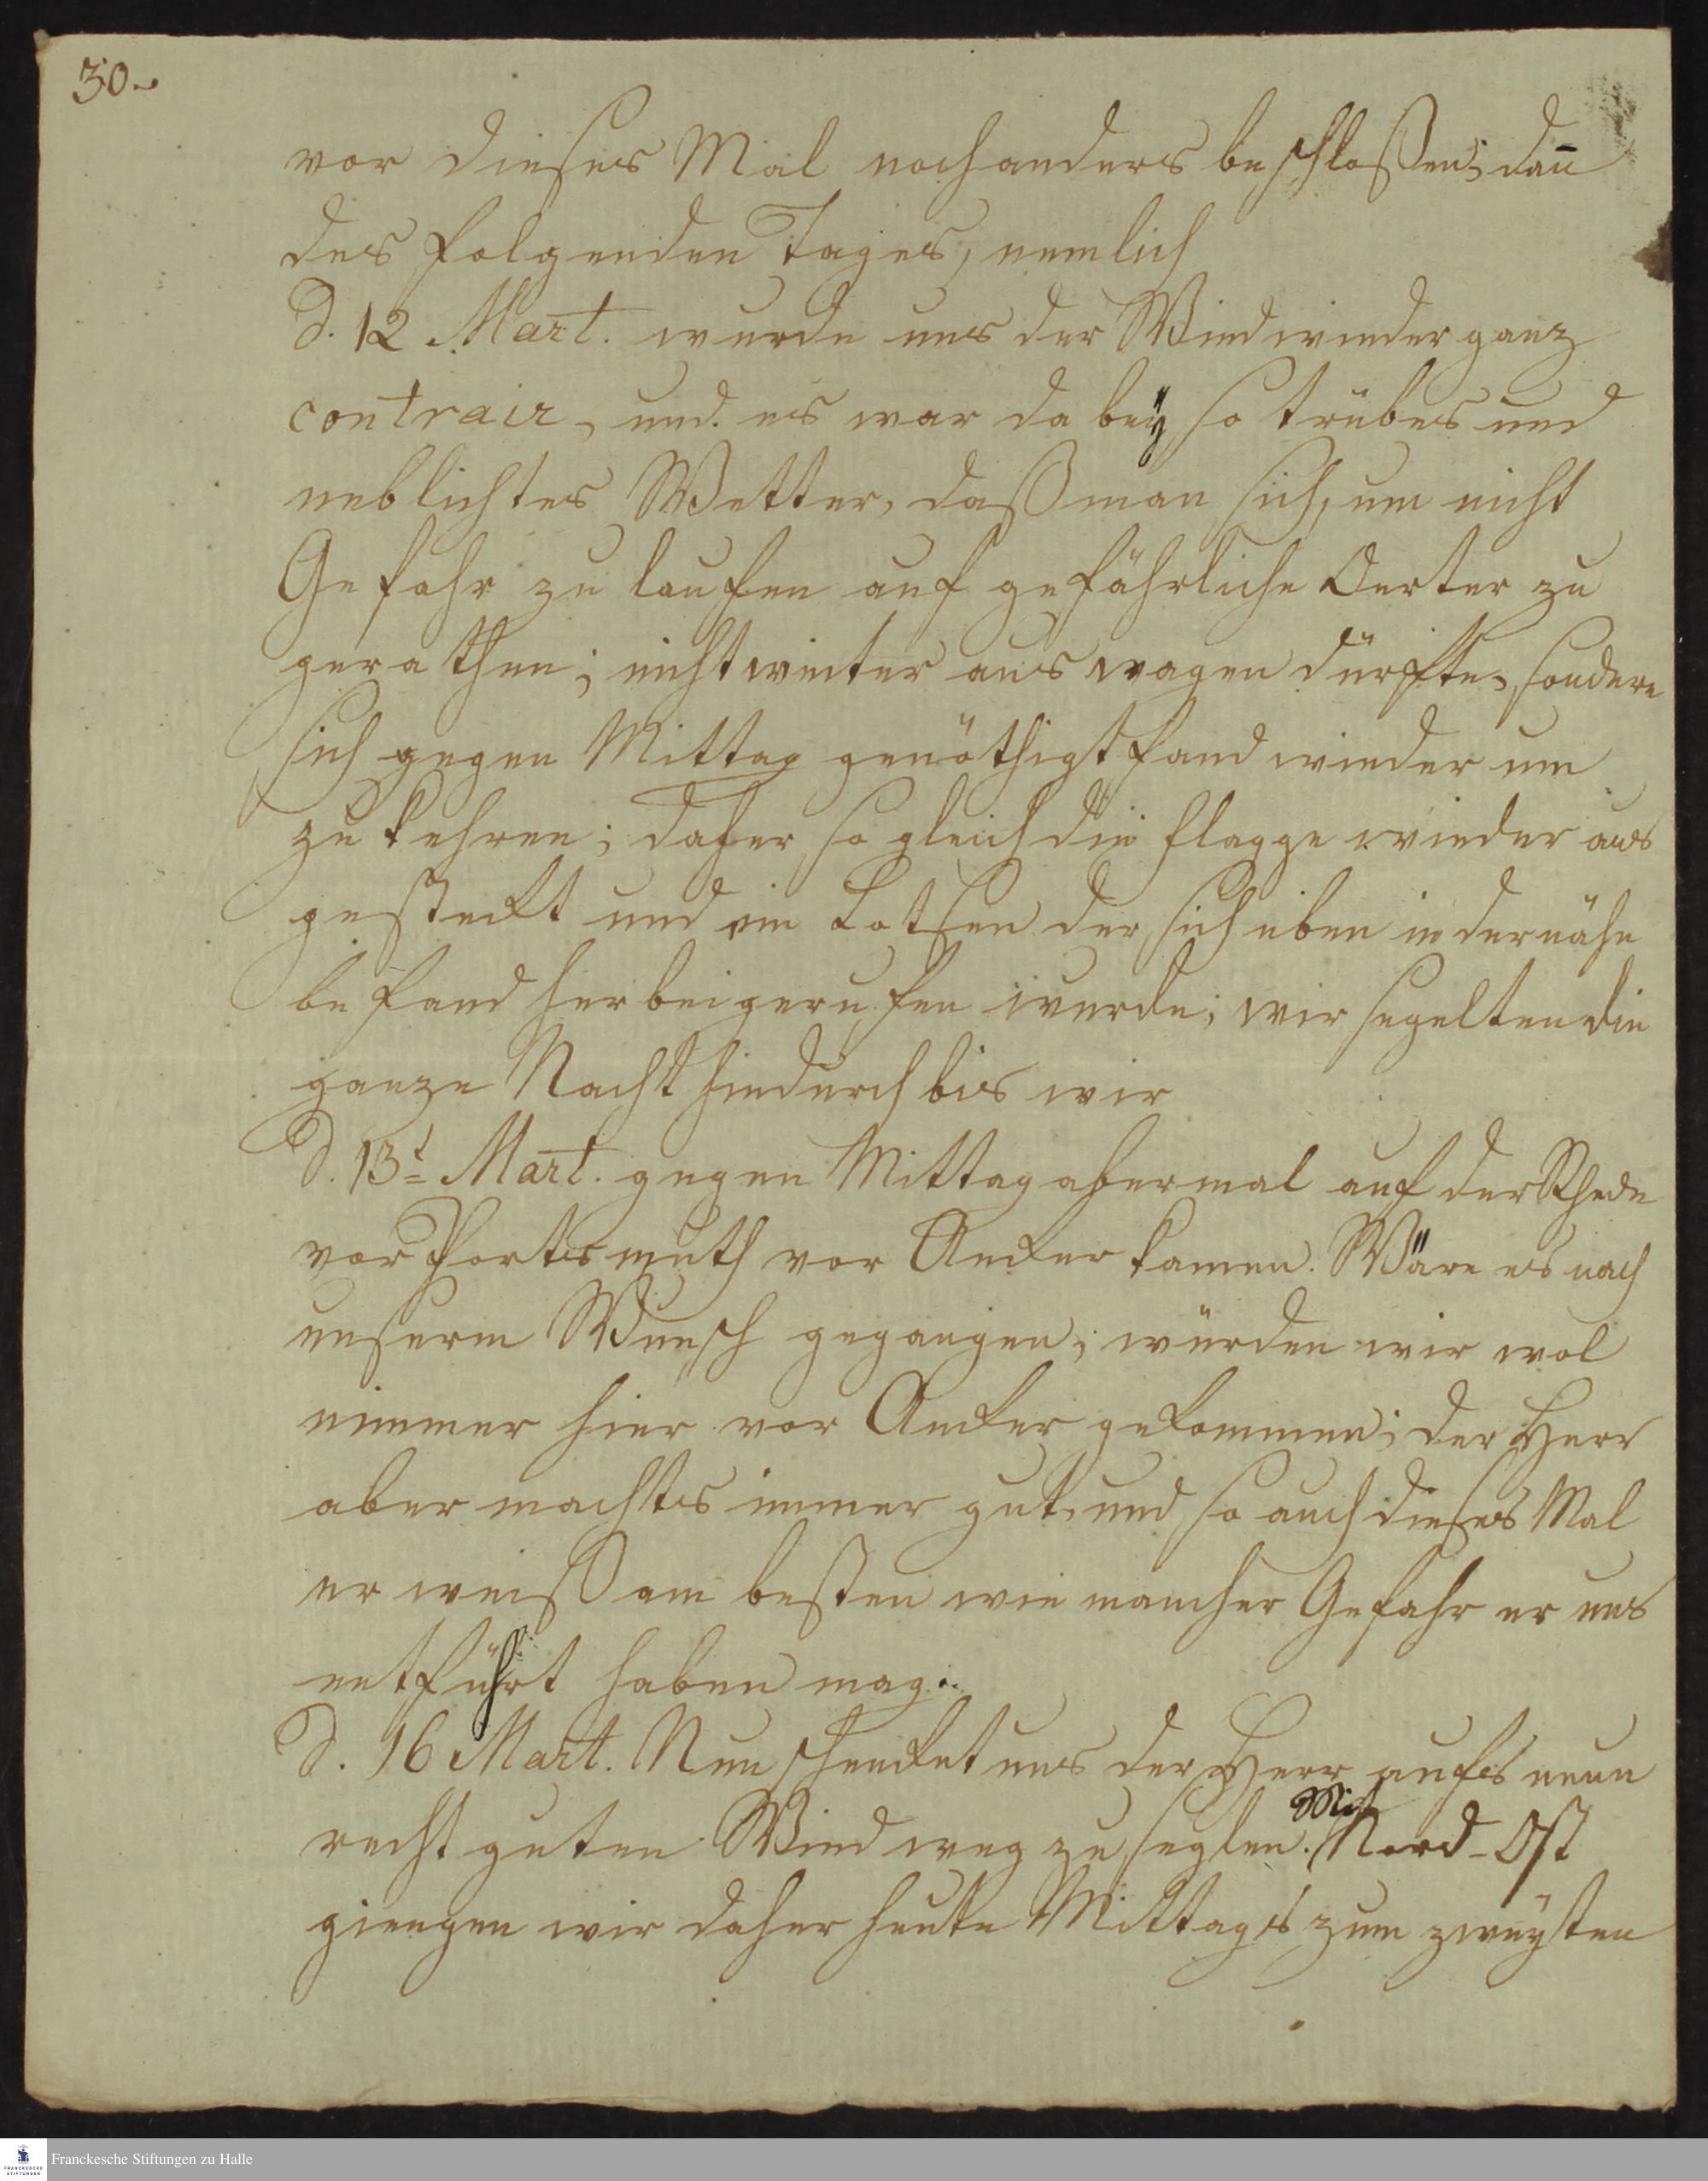 30.
vor dieses Mal noch anders beschloßen; dan̄
des folgenden Tages, nemlich
d. 12 Mart. wurde uns der Wind wieder ganz
contrair, und es war da beÿ so trübes und
neblichtes Wetter, daß man sich, um nicht
Gefahr zu laufen auf gefährliche Oerter zu
gerathen; nicht weiter aus wagen dürfte, sondern
sich gegen Mittag genöthigt fand wieder um
zu kehren; daher so gleich die flagge wieder aus
gesteckt und ein Lotsen der sich eben in der nähe
befand herbei gerufen wurde; wir segelten die
ganze Nacht hindurch bis wir
d. 13t Mart. gegen Mittag abermal auf der Rhede
vor Portsmuth vor Ancker kamen. Wäre es nach
unserm Wunsch gegangen; würden wir wol
nimmer hier vor Ancker gekommen; der Herr
aber machts immer gut, und so auch dieses Mal
er weiß am besten wie mancher Gefahr er uns
entführt haben mag.
d. 16 Mart. Nun schencket uns der Herr aufs neue
recht guten Wind weg zu seglen. Mit Nord-Ost
giengen wir daher heute Mittags zum zweÿten
Franckesche Stiftungen zu Halle
FRANCKESCHE
STIFTUNGEN